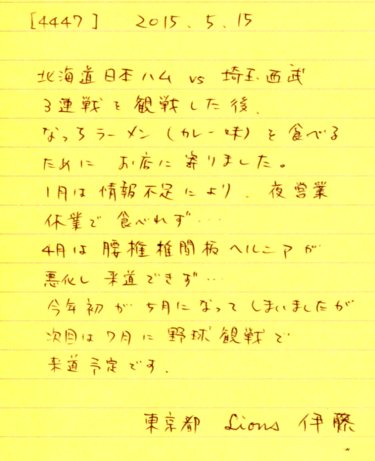 [4447] 2015.5.15
北海道日本ハム vs 埼玉西武
3連戦を観戦した後、
なっちラーメン(カレー味)を食べる
ために お店に寄りました。
1月は情報不足により、夜営業
休業で 食べれず…
4月は 腰椎椎間板ヘルニアが
悪化し 来道できず…
今年初が 5月になってしまいましたが
次回は7月に 野球観戦で
来道予定です.
東京都 Lions 伊藤